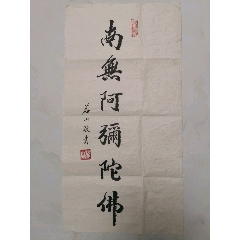 南無阿彌陀佛
若山敬書